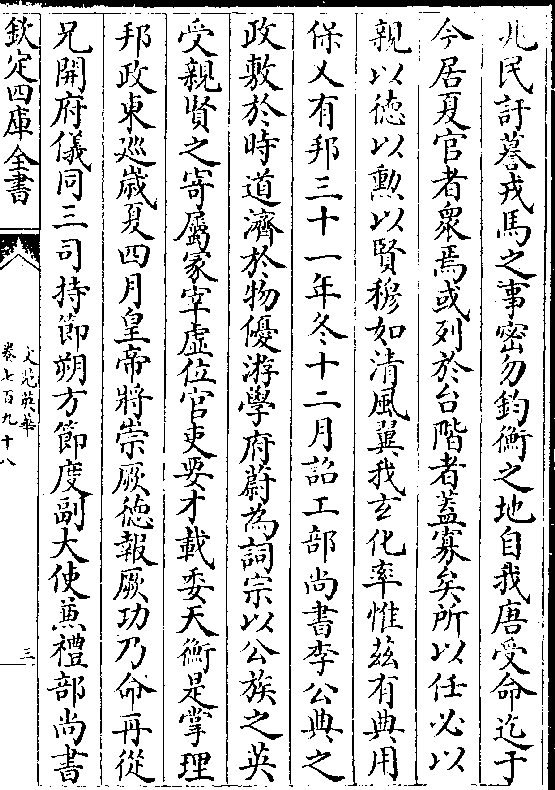 兆民訏謩戎馬之事密勿鈞衡之地自我唐受命迄于
今居夏官者衆焉或列於台階者蓋寡矣所以任必以
親以徳以勲以賢穆如清風翼我玄化率惟兹有典用
保乂有邦三十一年冬十二月詔工部尚書李公典之
政敷於時道濟於物優游學府蔚為詞宗以公族之英
受親賢之寄屬冢宰虚位官吏要才載委天衡是掌理
邦政東廵歳夏四月皇帝將崇厥徳報厥功乃命再從
兄開府儀同三司持節朔方節度副大使兼禮部尚書
欽定四庫全書
文苑英華
卷七百九十八
三